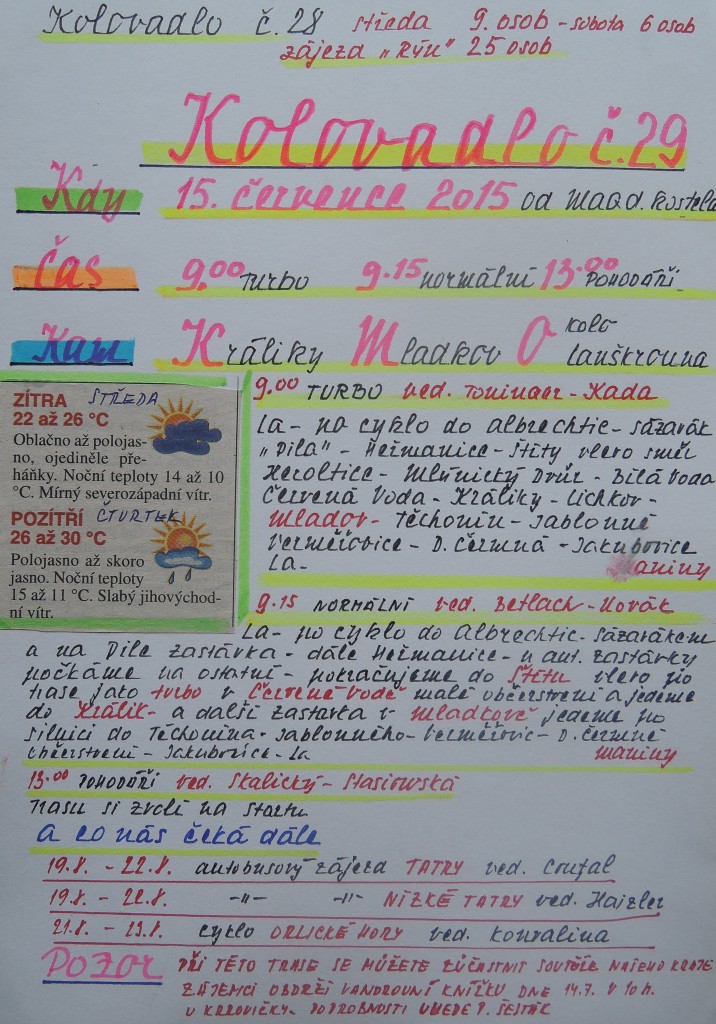 Kolovadlo č. 28 středa 9. osob - sobota 6 osob
zájezd "Rýn" 25 osob
Kolovadlo č. 29
Kdy 15. července 2015 od MAGD. kostela
Čas 9.00 TURBO 9.15 normální 13.00 POHODÁŘI
Kam Králíky Mladkov O kolo
Lanškrouna
ZÍTRA STŘEDA
22 až 26 °C
Oblačno až polojas-
no, ojediněle pře-
háňky. Noční teploty 14 až 10
°C. Mírný severozápadní vítr.
POZÍTŘÍ ČTVRTEK
26 až 30 °C
Polojasno až skoro
jasno. Noční teploty
15 až 11 °C. Slabý jihovýchod-
ní vítr.
9.00 TURBO ved. Toninger - Kada
La - po cyklo do Albrechtic - sázavák
"Díla" - Heřmanice - Štíty vlevo směr
Heroltice - Mlýnický Dvůr - Bílá Voda
Červená Voda - Králíky - Lichkov -
Mladov - Těchonín - Jablonné
Verměřovice - D. Čermná - Jakubovice
La - maniny
9.15 NORMÁLNÍ ved. Betlach - Novák
La - po cyklo do Albrechtic - sázavákem
a na Díle zastávka - dále Heřmanice - u aut. zastávky
počkáme na ostatní - pokračujeme do Štítů vlevo po
trase jako turbo v Červené Vodě malé občerstvení a jedeme
do Králík - a další zastávka v Mladkově jedeme po
silnici do Těchonína - Jablonného - Verměřovic - D. Čermné
občerstvení - Jakubovice - La maniny
13.00 POHODÁŘI ved. Skalický - Stasiowská
Trasu si zvolí na startu
A co nás čeká dále
19.8. - 22.8. autobusový zájezd TATRY ved. Coufal
19.8. - 22.8. -"- -"- NÍZKÉ TATRY ved. Haizler
21.8. - 23.8. cyklo ORLICKÉ HORY ved. Konvalina
Pozor PŘI TÉTO TRASE SE MŮŽETE ZÚČASTNIT SOUTĚŽE NAŠEHO KRAJE
ZÁJEMCI OBDRŽÍ VANDROVNÍ KNÍŽKU DNE 14.7. V 10 h.
U KRKOVIČKY. PODROBNOSTI UVEDE P. ŠESTÁK